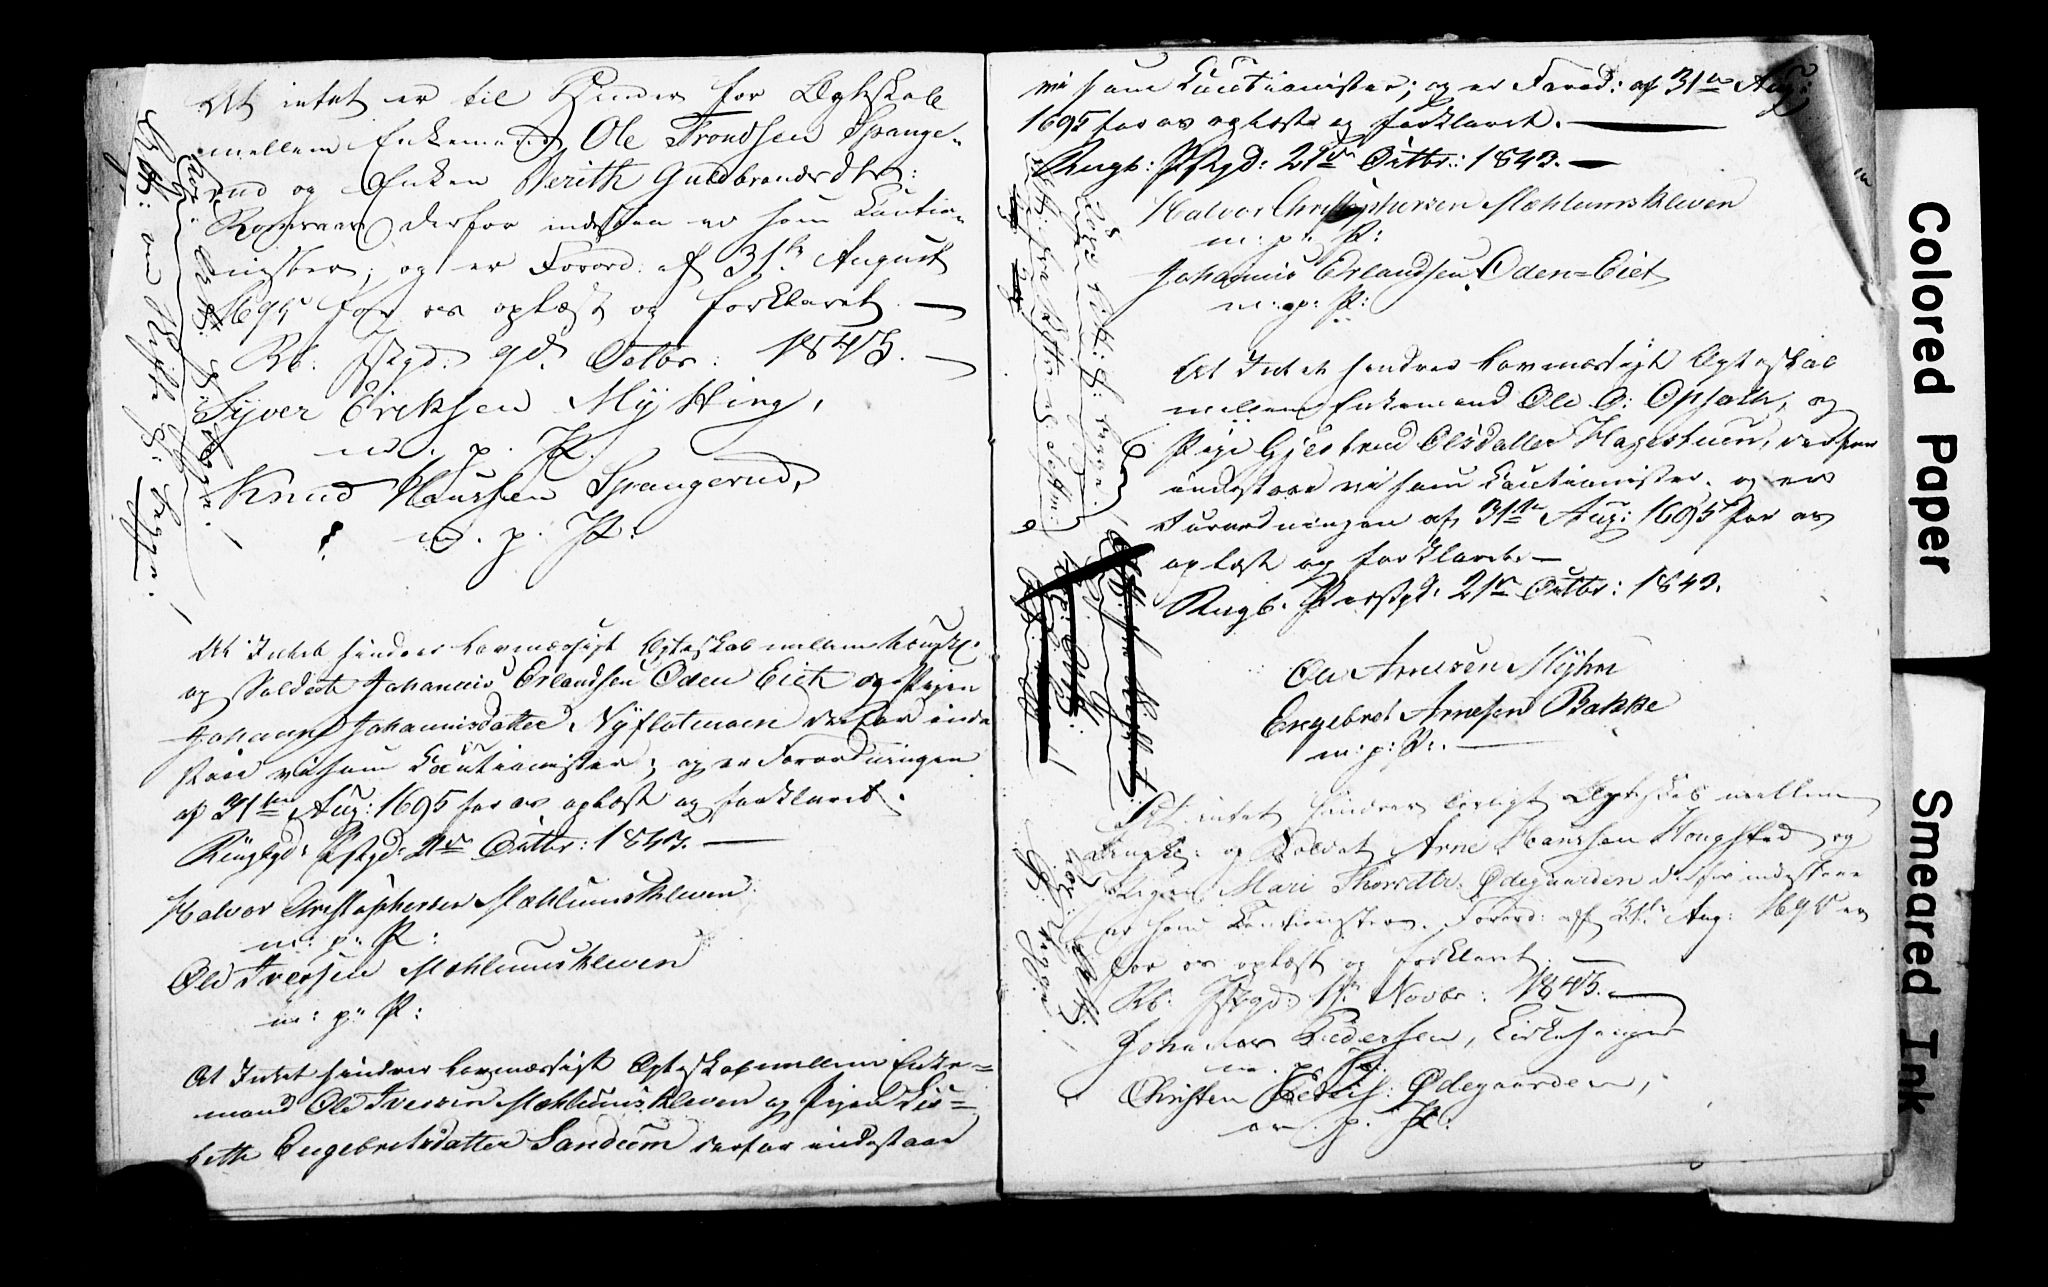 At intet er til Hinder for Ægteskab
mellem Enkemand Ole Trondsen Spange-
rud og Enken Berith Guldbrandsdtr:
derfor indestaa vi som Cautio-
nister; og er Forord: af 31te August
1695 for os oplæst og forklaret. —
Rb: Pstgd: 9d. Octbr: 1843. —
Syver Eriksen Mytting,
m. p. P.
Knud Hansen Spangerud,
m. p. P.
At Intet hindrer lovmæssigt Ægteskab mellem Ungk:
og Soldat Johannis Erlandsen Oden Eiet og Pigen
Johanne Johannisdatter Nyfløtmoen derfor inde
staae vi som Cautionister; og er Forordningen
af 31te Aug: 1695 for os oplæst og forklaret.
Ringbg: Pstgd: 21de Octbr: 1843. —
Halvor Christophersen Mæhlumskleven
m: p: P:
Ole Iversen Mæhlumskleven
m: p: P:
At Intet hindrer lovmæssigt Ægteskab mellem Enke=
mand Ole Iversen Mæhlumskleven og Pigen Lis=
beth Engebretsdatter Sandum derfor indestaae
vi som Cautionister; og er Forord: af 31te Aug:
1695 for os oplæst og forklaret. —
Ringb: Pstgd: 21de Octbr: 1843. —
Halvor Christophersen Mæhlumskleven
m: p: P:
Johannis Erlandsen Oden=Eiet
m: p: P:
At Intet hindrer lovmæssigt Ægteskab
mellem Enkemand Ole O: Opsath, og
Pige Gjertrud Olsdatter Hagestuen, derfor
indestaae vi som Cautionister. og er
Forordningen af 31te Aug: 1695 for os
oplæst og forklaret. —
Ringb: Præstgd: 21de Octbr: 1843.
Ole Arnesen Myhre
Engebret Arnesen Bakke
m: p: P:. —
At intet hindrer lovligt Ægteskab mellem
Ungk: og Soldat Arne Hansen Kongsted og
Pigen Mari Thorsdtr. Ødegaarden derfor indestaae
vi som Cautionister. Forord: af 31te Aug: 1695 er
for os oplæst og forklaret.
Rb: Pstgd: Novbr: 1843. —
Johannes Pedersen, Kirkesanger
m. p. P.
Christen Ødegaarden,
m. p. P.
Colored Paper
Smeared Ink